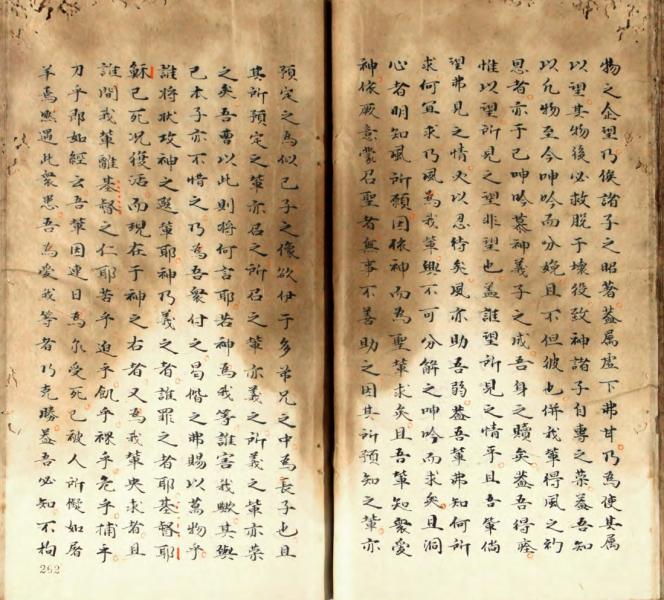 物之企望乃俟諸子之昭著葢属虛下弗甘乃為使其属
以望其物後必救脫于壞役致神諸子自專之荣葢吾知
以凢物至今呻吟而分娩且不但彼也併我輩得風之礿
恩者亦于己呻吟慕神義子之成吾身之贖矣葢吾得痊
惟以望所見之望非望也盖誰望所見之情乎且吾輩倘
望弗見之情必以忍待矣風亦助吾弱葢吾輩弗知何所
求何宜求乃風為我輩興不可分解之呻吟而求矣且洞
心者明知風所願因依神而為聖輩求矣且吾輩知衆愛
神依厥意蒙召聖者無事不善助之因其所預知之輩亦
預定之為似己子之像欲伊于多弟兄之中為長子也且
其所預定之輩亦召之所召之輩亦義之所義之輩亦荣
之矣吾曹以此則將何言耶若神為我等誰害我歟其與
己本子亦不惜之乃為吾衆付之曷偕之弗賜以萬物乎
誰將狀攻神之選輩耶神乃義之者誰罪之者耶基督耶
穌已死况復活而現在于神之右者又為我輩央求者且
誰間我輩離基督之仁耶苦乎迫乎飢乎裸乎危乎捕乎
刀乎即如經云吾輩因連日為尔受死已被人所儗如屠
羊焉然過此衆患吾為愛我等者乃克勝葢吾必知不拘
262